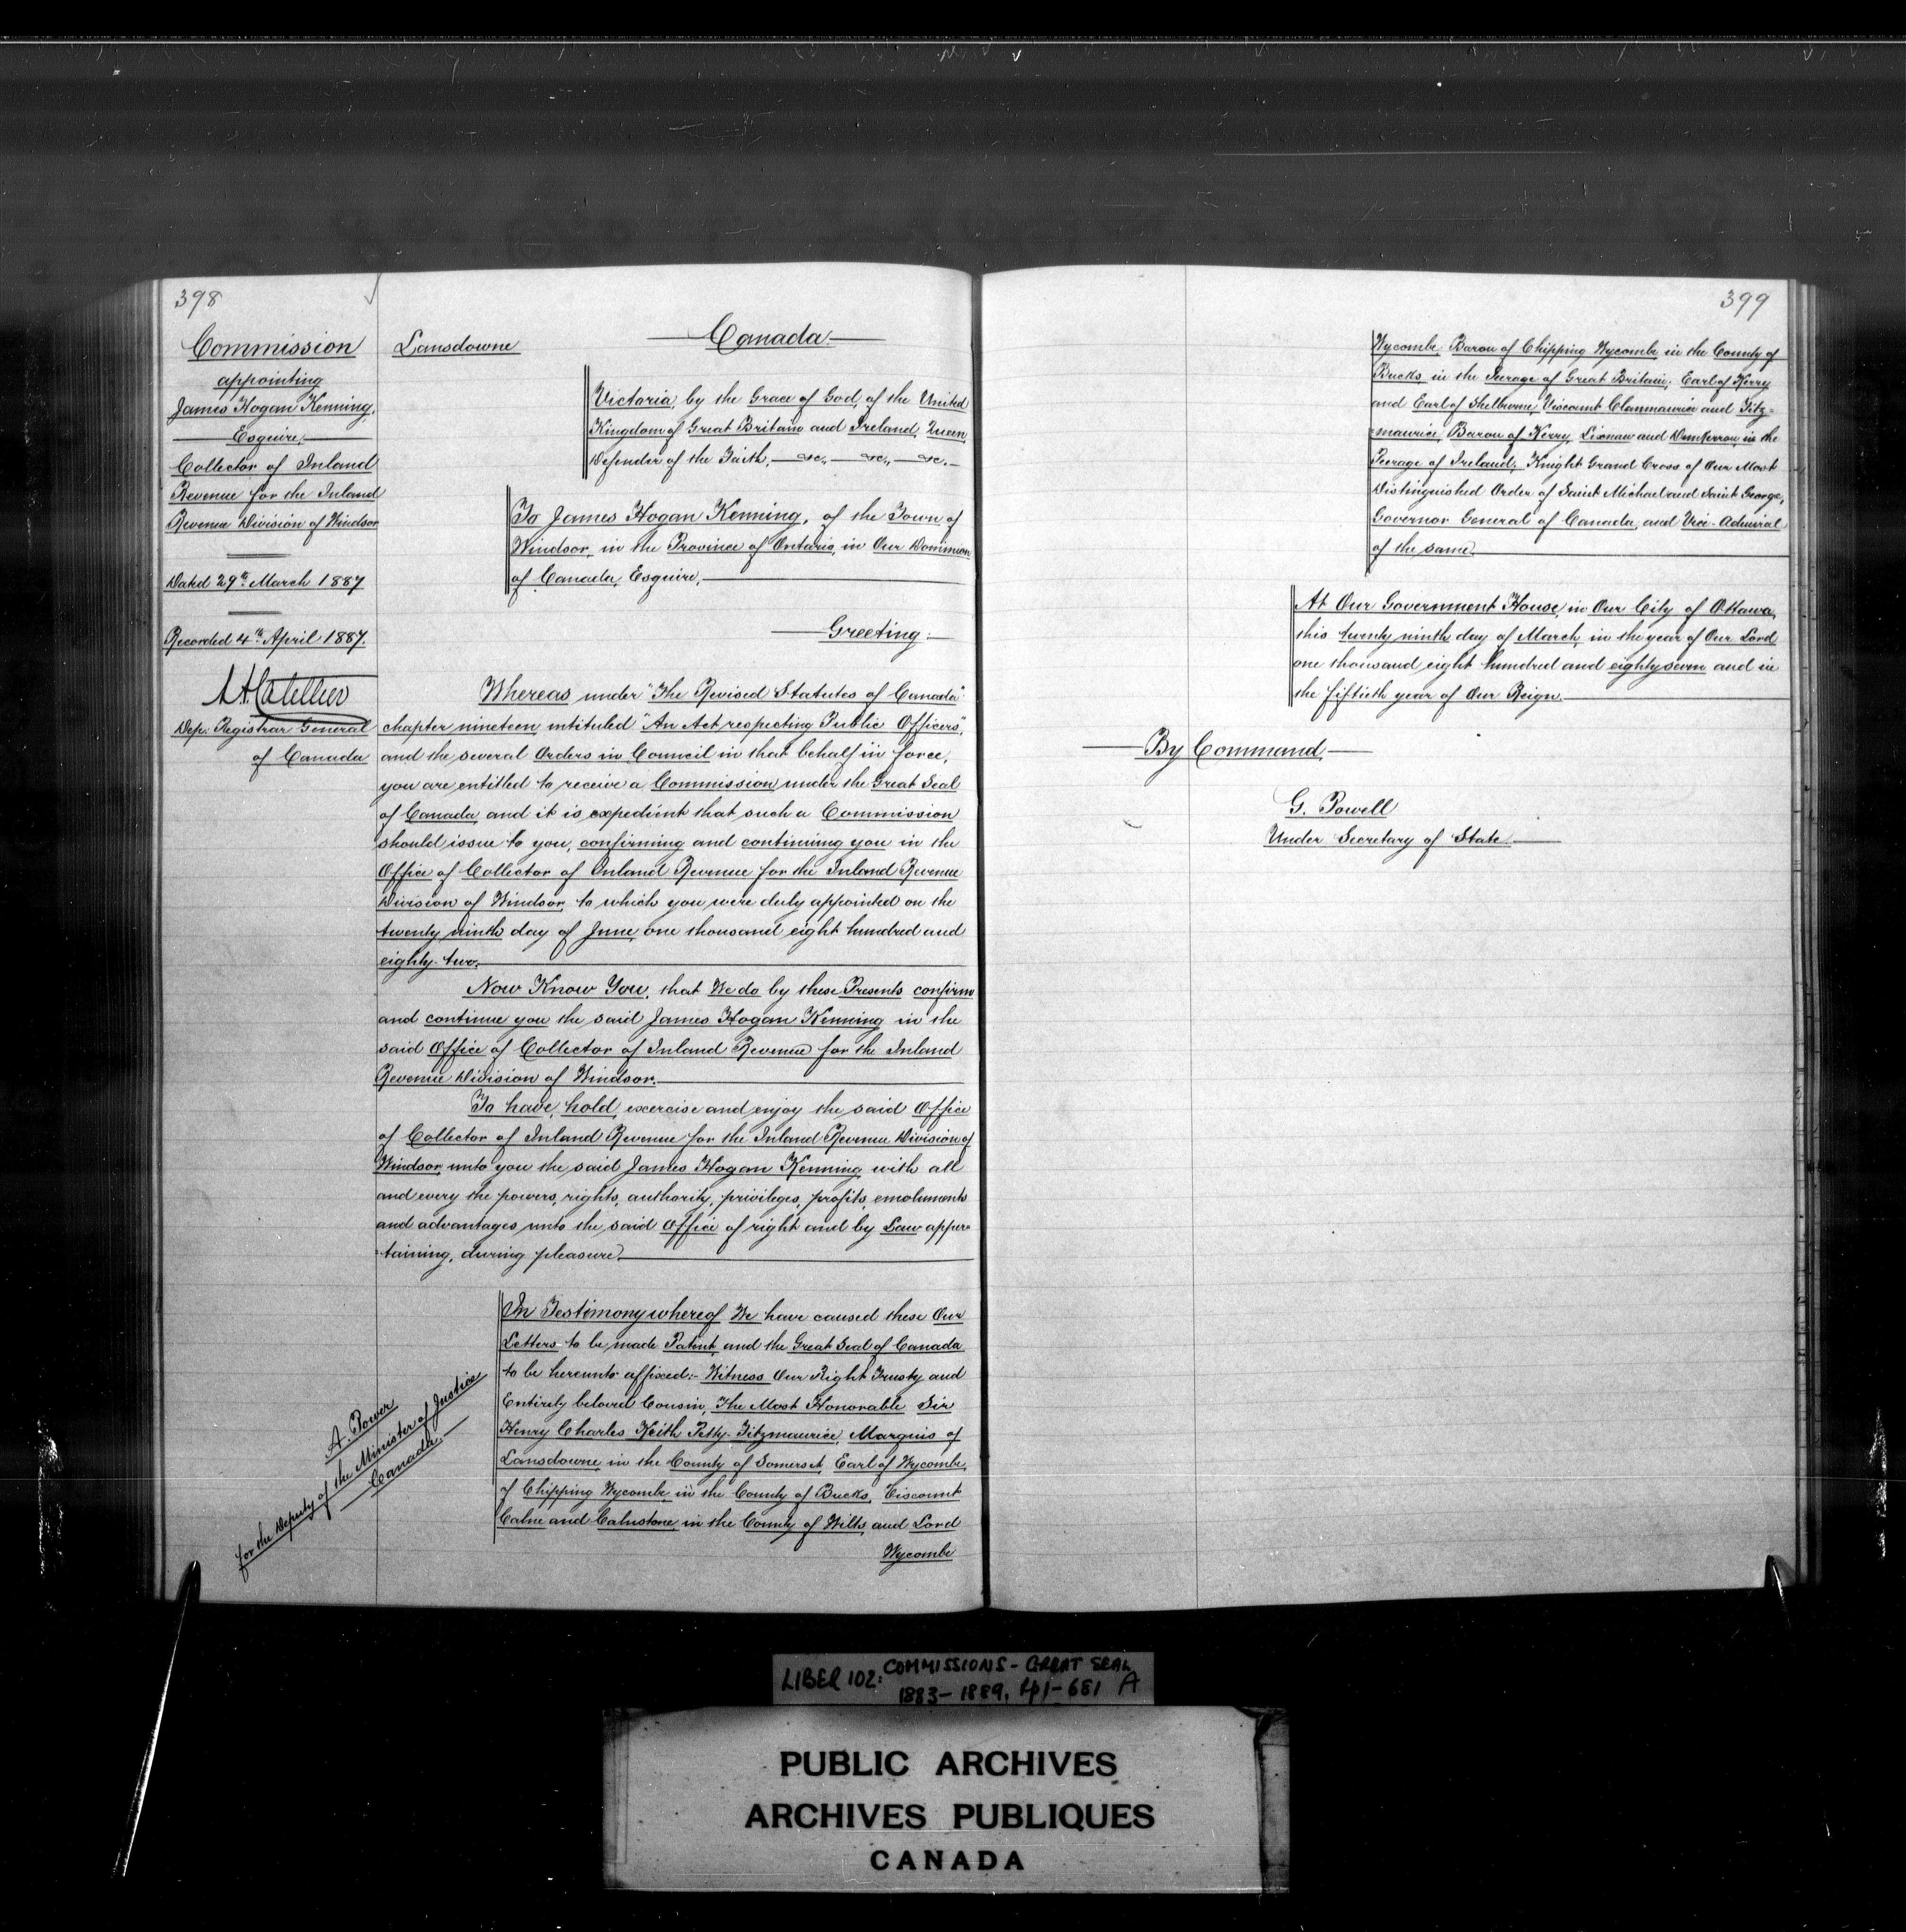 398
Commission
appointing
James Hogan Kenning,
Esquire,
Collector of Inland
Revenue for the Inland
Revenue Division of Windsor
Dated 29th March 1887
Recorded 4th April 1887.
Dep. Registrar General
of Canada
Lansdowne
Canada.
Victoria, by the Grace of God, of the United
Kingdom of Great Britain and Ireland, Queen
Defender of the Faith, &c., &c., &c.
To James Hogan Kenning, of the Town of
Windsor, in the Province of Ontario, in Our Dominion
of Canada, Esquire,
Greeting:
Whereas under "The Revised Statutes of Canada"
chapter nineteen intituled "An Act respecting Public Officers",
and the several Orders in Council in that behalf in force,
you are entitled to receive a Commission under the Great Seal
of Canada, and it is expedient that such a Commission
should issue to you, confirming and continuing you in the
Office of Collector of Inland Revenue for the Inland Revenue
Division of Windsor, to which you were duly appointed on the
twenty ninth day of June, one thousand eight hundred and
eighty-two.
Now Know You, that We do by these Presents confirm
and continue you the said James Hogan Kenning in the
said Office of Collector of Inland Revenue for the Inland
Revenue Division of Windsor.
To have, hold, exercise and enjoy the said Office
of Collector of Inland Revenue for the Inland Revenue Division of
Windsor, unto you the said James Hogan Kenning with all
and every the powers, rights, authority, privileges, profits, emoluments
and advantages unto the said Office of right and by Law apper=
taining, during pleasure.
In Testimony whereof We have caused these Our
Letters to be made Patent, and the Great Seal of Canada
to be hereunto affixed:- Witness Our Right Trusty and
Entirely beloved Cousin, The Most Honorable Sir
Henry Charles Keith Petty-Fitzmaurice, Marquis of
Lansdowne, in the County of Somerset, Earl of Wycombe,
of Chipping Wycombe, in the County of Bucks, Viscount
Calne and Calnstone, in the County of Wilts, and Lord
Wycombe
A. Power
for the Deputy of the Minister of Justice
Canada.
399
Wycombe, Baron of Chipping Wycombe, in the County of
Bucks, in the Peerage of Great Britain; Earl of Kerry
and Earl of Shelburne, Viscount Clanmaurice and Fitz=
=maurice, Baron of Kerry, Lixnaw and Dunkerron, in the
Peerage of Ireland; Knight Grand Cross of Our Most
Distinguished Order of Saint Michael and Saint George,
Governor General of Canada, and Vice-Admiral
of the same.
At Our Government House, in Our City of Ottawa,
this twenty ninth day of March, in the year of Our Lord
one thousand eight hundred and eighty seven and in
the fiftieth year of Our Reign.
By Command,
G. Powell
Under Secretary of State.
LIBER 102: COMMISSIONS - GREAT SEAL
1883-1889, pp 1-681 A
PUBLIC ARCHIVES
ARCHIVES PUBLIQUES
CANADA